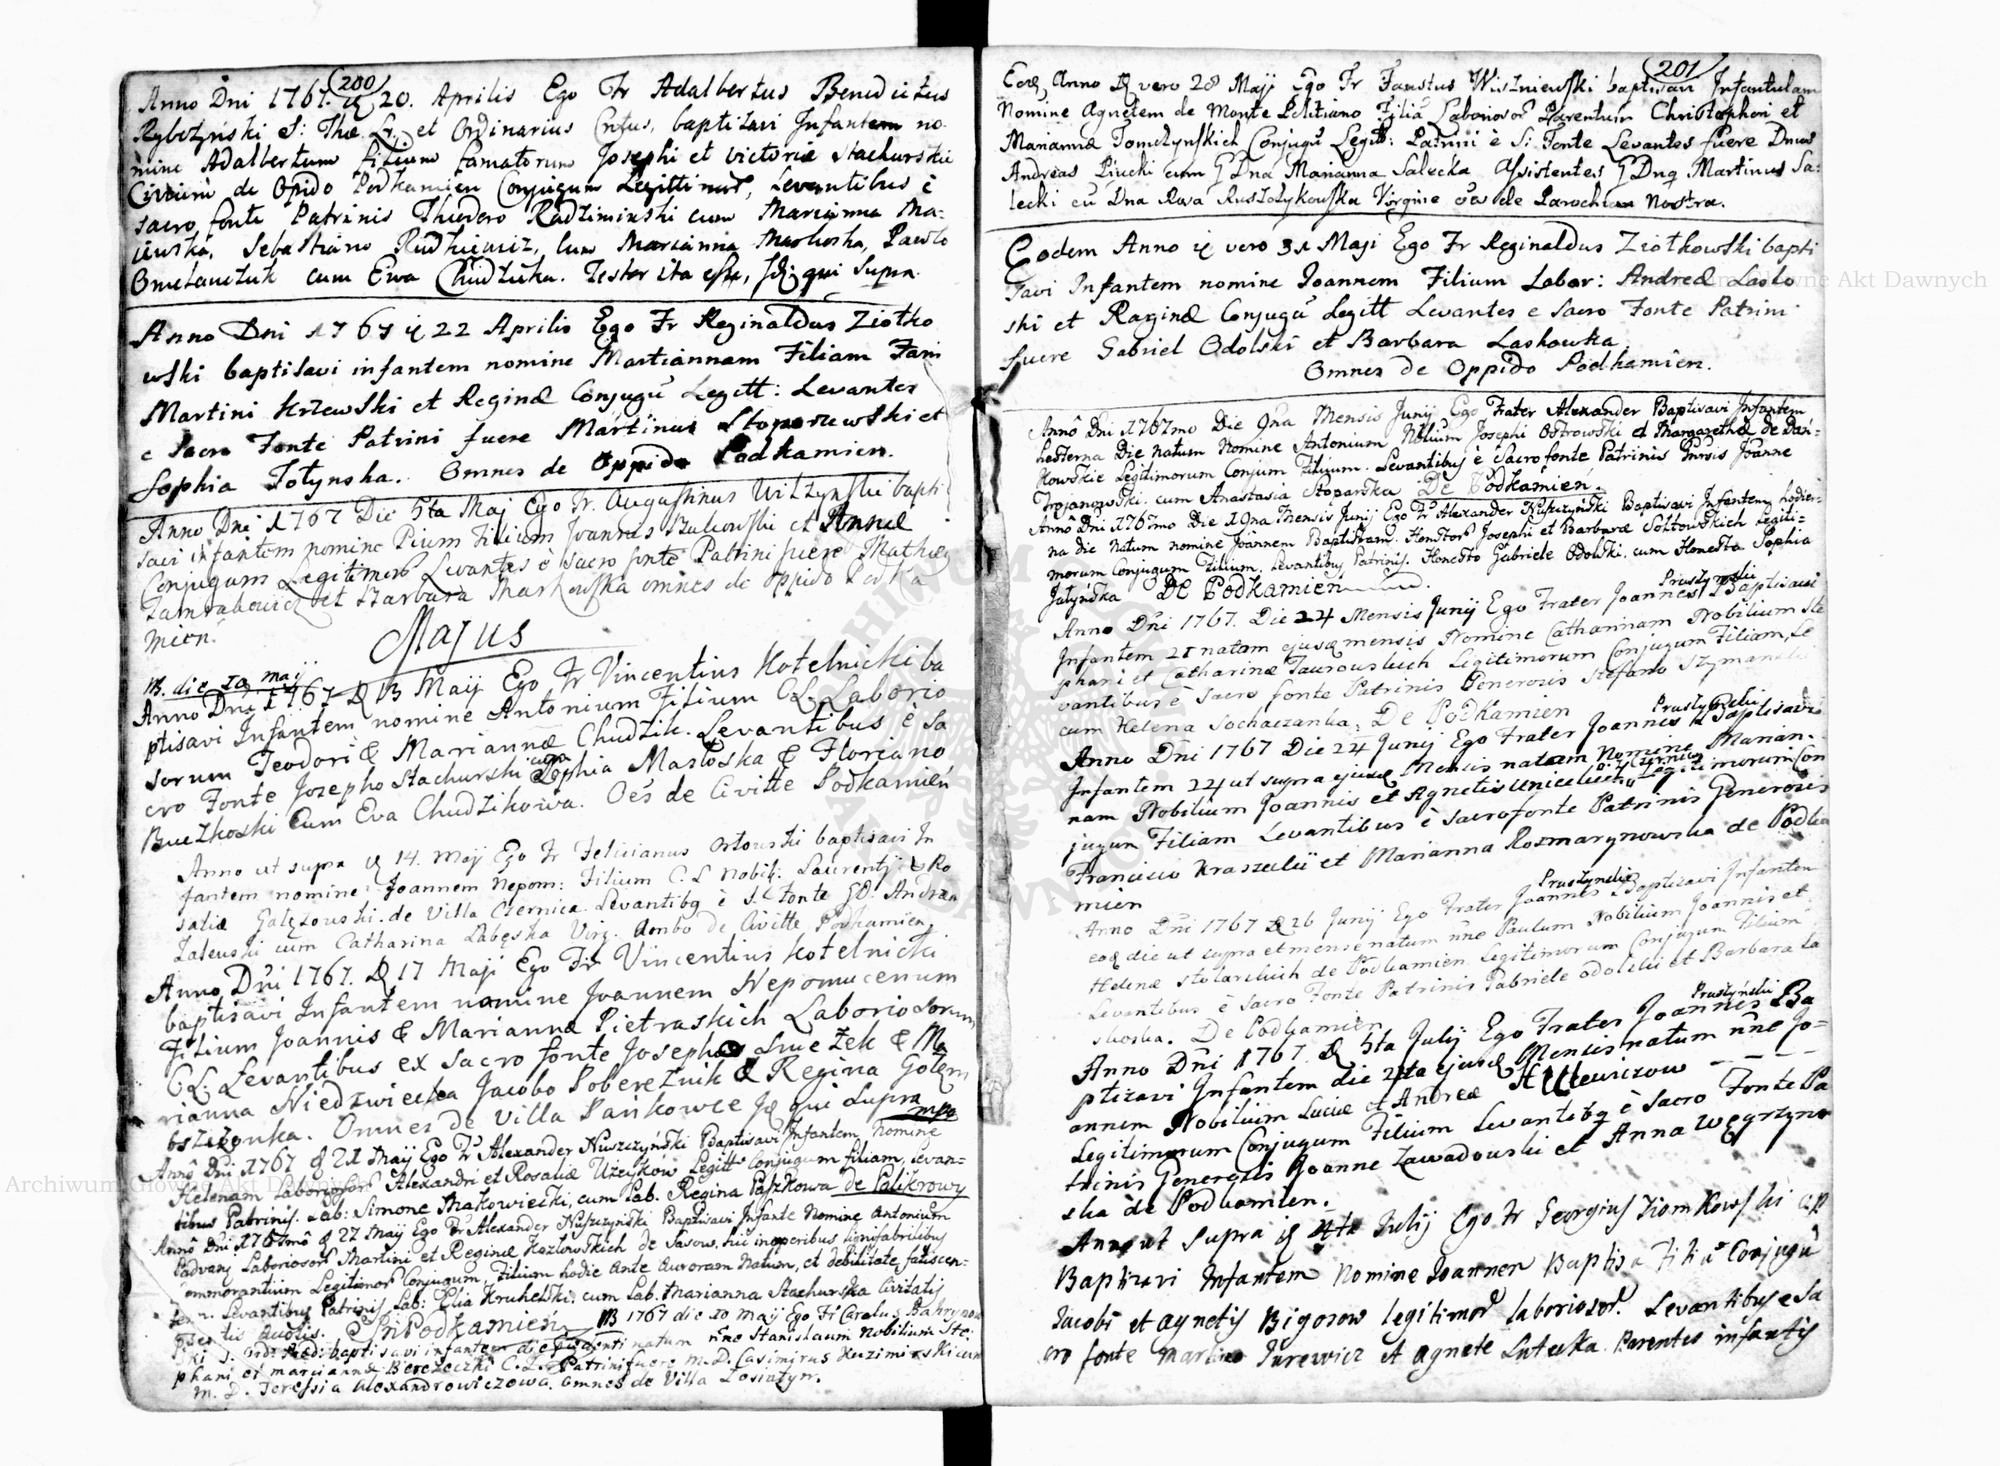 200
Anno Dni 1767. 20. Aprilis Ego Fr Adalbertus Benedictus
Rybczyński S: Thæ Lr. et Ordinarius baptisavi Infantem no
mine Adalbertum filium famatorum Josephi et Victoriæ Stachurskie
Civium de Opido Podkamien Conjugum Legittimor, Levantibus è
sacro fonte Patrinis Theodoro Radziminski cum Marianna Ma:
Sebastiano Rudkiewicz, cum Marianna Paulo
cum Ewa Chudzicka. Testor ita esse, qui supra.
Anno Dni 1767 22 Aprilis Ego Fr Reginaldus Ziołko
wski baptisavi infantem nomine Mariannam Filiam Fam
Martini Krzewski et Reginæ Conjugu Legitt: Levantes
e Sacro Fonte Patrini fuere Martinus Stoparzewski et
Sophia Jotynska. Omnes de Oppido Podkamien.
Anno Dni 1767 Die 5ta Maj Ego Fr. Augustinus Wilzynski bapti
savi infantem nomine Pium Filium Joannis Bukowski et Annæ
Conjugum Legitimor Levantes è sacro fonte Patrini fuere Mathæ
et Barbara Markowska omnes de oppido Podka
mien.
Majus
NB. die 10 maij
Anno Dni 1767 13 Maij Ego Fr Vincentius Kotelnicki ba
ptisavi Infantem nomine Antonium Filium C.L. Laborio
sorum Teodori & Mariannæ Chudzik. Levantibus è Sa
cro Fonte Josepho Stachurski cum Sophia Masłoska & Floriano
Buczkoski Cum Eva Chudzikowa. Oes de Civitte Podkamień
Anno ut supra 14. Maij Ego Fr Felicianus Ostowski baptisavi In
fantem nomine Joannem Nepom: Filium C. L Nobil: Laurentij & Ro
saliæ Gałęzowski. de Villa Czernica Levantibq è S. Fonte GD. Andrea
Zalewski cum Catharina Łabęska Virg. Ambo de Civitte Podkamien
Anno Dni 1767. 17 Maji Ego Fr Vincentius Kotelnicki
baptisavi Infantem nomine Joannem Nepomucenum
Filium Joannis & Mariannæ Pietraskich Laboriosorum
C. L: Levantibus ex Sacro fonte Josepho & Ma
rianna Niedzwiecka Jacobo Pobereznik & Regina Golem
Omnes de Villa Pańkowce qui Supra
Anno Dni 1767 21 Maij Ego Fr Alexander Nuszczyński Baptisavi Infantem Nomine
Helenam Laboriosor Alexandri et Rosaliæ Uzejków Legitt Conjugum filiam, Levan=
tibus Patrinis. Lab: Simone Makowiecki, cum Lab. Regina Paszkowa de Palikrowy
Anno Dni 1767mo 27 Maij Ego Fr Alexander Nuszczyński Baptisavi Infante Nomine Antonium
Padvany Laboriosor Martini et Reginæ Kozłowskich de Sasow, hic in operibus lignifabrilibus
ommorantium Legitimor Conjugum, Filium hodie Ante Auroram Natum, et debilitate fatiscen=
tem. Levantibus Patrinis Lab: Elia Kruhelski cum Lab. Marianna Stachurska Civitatis
Podkamień NB 1767 die 10 maij Ego Fr Carolus
baptisavi infantem die natum nne Stanislaum Nobilium Ste:
phani et Mariannæ Berezecki C. L. Patrini fuere M. D. Casimirus Kuzimirski cum
M. D. Teressia Alexandrowiczowa. omnes de Villa Łosiatyn.
201
Eod, Anno vero 28 Maji Ego Fr Faustus Wiszniewski baptisavi Infantulam
Nomine Agnetem de Monte Politiano Filia Laboriosor Parentum Christophori et
Mariannæ Tomczynskich Conjugu Legitt: Patrini è S: Fonte Levantes fuere Dnus
Andreas Piucki cum GDna Marianna Salecka Assistentes GDnq Martinus Sa:
lecki cu Dna Rosa Virgine de Parochia Nostra.
Eodem Anno vero 31 Maji Ego Fr Reginaldus Ziołkowski bapti
savi Infantem nomine Joannem Filium Labor: Andreæ Lasko
ski et Raginæ Conjugu Legitt Levantes e Sacro Fonte Patrini
fuere Gabriel Odolski et Barbara Laskowka
Omnes de Oppido Podkamien.
Anno Dni 1767mo Die 9na Mensis Junij Ego Frater Alexander Baptisavi Infantem
hesterna Die natum Nomine Antonium Filium Josephi Ostrowski et Margarethæ de Dań=
kowskie Legitimorum Conjum Filium. Levantibus è Sacro fonte Patrinis Joanne
Trojanowski. cum Anastasia Stoparska De Podkamień.
Anno Dni 1767mo Die 19na Mensis Junij Ego Fr Alexander Nuszczyński Baptisavi Infantem hodier=
na die Natum nomine Joannem Baptistam. Honstor Josephi et Barbaræ Sołtowskich Legiti=
morum Conjugum Filium. Levantibus Patrinis. Honesto Gabriele Odolski. cum Honesta Sophia
Jatyńska De Podkamien
Pruszynski
Anno Dni 1767. Die 24 Mensis Junij Ego Frater Joannes Baptisavi
Infantem 21 natam ejusq mensis Nomine Catharinam Nobilium Ste
phani et Catharinæ Taurouskich Legitimorum Conjugum Filiam, Le
vantibus è sacro fonte Patrinis Generosis Stefano Szymanski
cum Helena Sochaczanka. De Podkamien
Pruszynski
Anno Dni 1767 Die 24 Junij Ego Frater Joannes Baptisavi
Infantem 22 ut supra ejusq Mensis natam Nomine Marian.
nam Nobilium Joannis et Agnetis Legitimorum Con
jugum Filiam Levantibus è Sacro fonte Patrinis Generosis
Francisco Kraszelii et Marianna Rosmarynowska de Podka
mien
Pruszynski
Anno Dni 1767 26 Junij Ego Frater Joannes Baptisavi Infantem
eoq die ut supra et mense natum nne Paulum Nobilium Joannis et
Helenæ Stolarskich de Podkamien Legitimorum Conjugum Filium
Levantibus è Sacro Fonte Patrinis Gabriele Odolski et Barbara La
skoska. De Podkamien
Pruszyński
Anno Dni 1767. 5ta Julij Ego Frater Joannes Ba
ptizavi Infantem die 2da ejusq Mensis natum nne Jo=
annem Nobilium Luciæ et Andreæ
Legitimorum Conjugum Filium Levantibq è Sacro Fonte Pa
trinis Generosis Joanne Zawadouski et Anna Węgrzyno
ska de Podkamien.
Anno ut Supra 4ta Julij Ego Fr Georgius Ziomkowski
Baptizavi Infantem Nomine Joannem Baptista Filiu Conjugu
Jacobi et Agnetis Bigosow legitimor laboriosor. Levantibus e Sa
cro fonte Martino Jurewicz et Agnete Lutecka Parentes infantis
Archiwum Główne Akt Dawnych